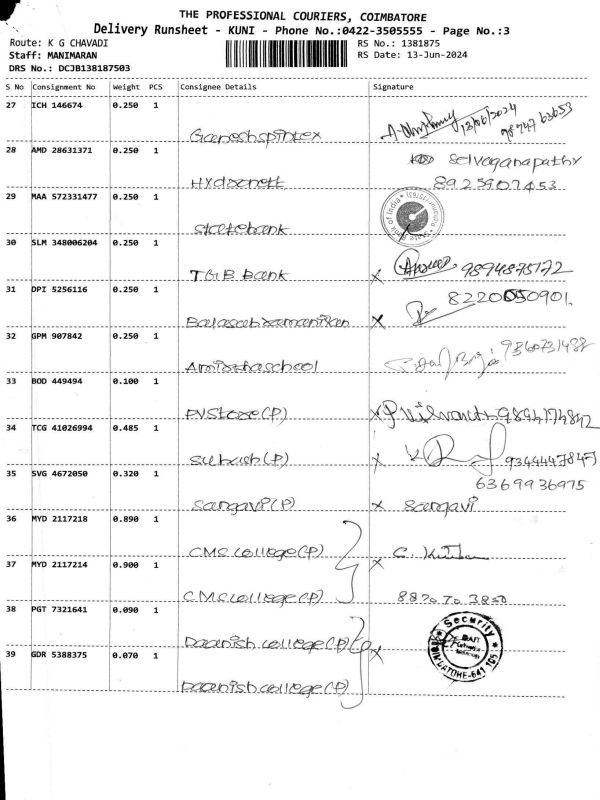 THE PROFESSIONAL COURIERS, COIMBATORE
Delivery Runsheet - KUNI - Phone No.:0422-3505555 - Page No.:3
Route: K G CHAVADI RS No.: 1381875
Staff: MANIMARAN RS Date: 13-Jun-2024
DRS No.: DCJB138187503
S No Consignment No Weight PCS Consignee Details Signature
27 ICH 146674 0.250 1
Ganeshspintex 13/06/2024 98747 63653
28 AMD 28631371 0.250 1 Selvaganapathy
8925907453
29 MAA 572331477 0.250 1
State bank State Bank of India
30 SLM 348006204 0.250 1
TGB Bank 9894875172
31 DPI 5256116 0.250 1 8220050901.
32 GPM 907842 0.250 1
Amirthaschool
33 BOD 449494 0.100 1
PVStore(P) 9894174842
34 TCG 41026994 0.485 1
Subash(P) 9344447847
35 SVG 4672050 0.320 1 6369936975
Sangavi(P) x Sangavi
36 MYD 2117218 0.890 1
CMS college(P)
37 MYD 2117214 0.900 1 x
CMS college(P)
38 PGT 7321641 0.090 1
Daanish college(P) Security
39 GDR 5388375 0.070 1 x
Daanish college(P) COIMBATORE-641 105